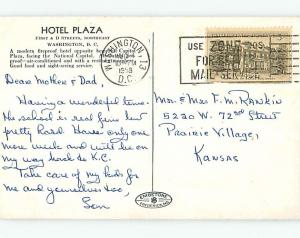 HOTEL PLAZA
FIRST & D STREETS, NORTHEAST
WASHINGTON, D. C.
A modern fireproof hotel opposite beautiful Capitol
Plaza, facing the National Capitol.
proof—air-conditioned and with a restaurant
Good food and sight-seeing service.
WASHINGTON, 13
PM
1958
D.C.
USE ZONE NOS.
FOR
MAIL
Dear Mother & Dad,
Having a wonderful time.
The school is real fine but
pretty hard. Have only one
more week and will be on
my way back to K.C.
Take care of my kids for
me and yourselves too.
Son
Mr. & Mrs F. M. Rankin
5220 W. 72nd Street
Prairie Village,
Kansas